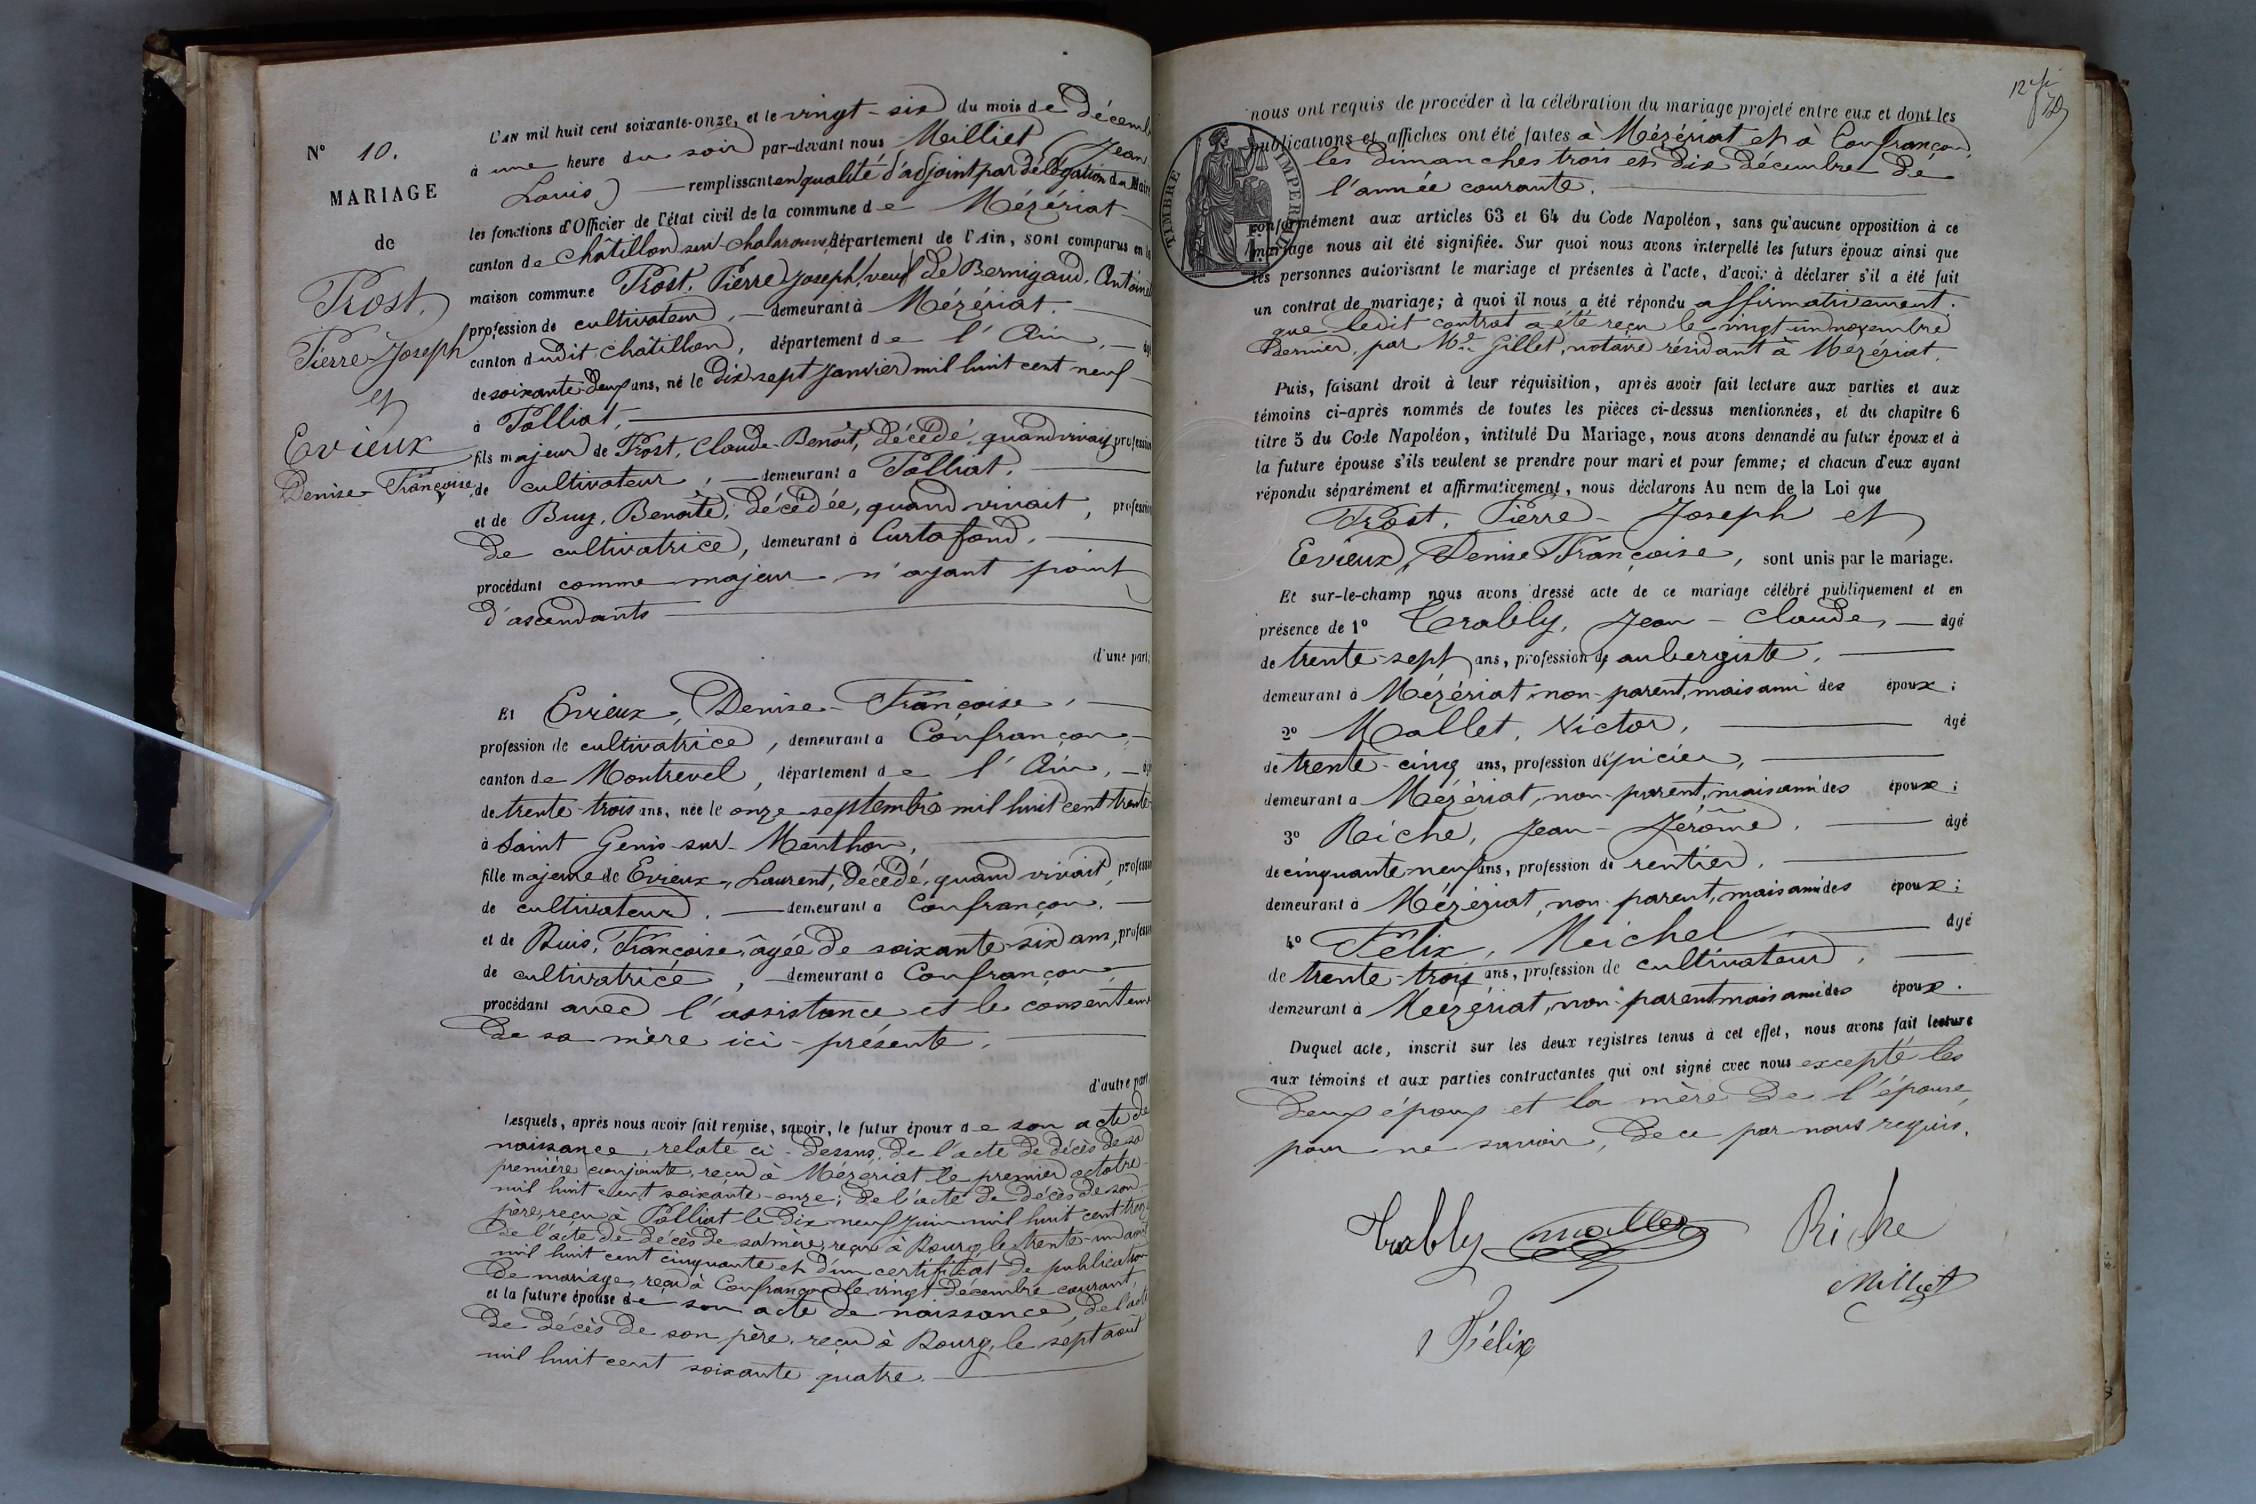 N° 10.
MARIAGE
de
Prost,
Pierre-Joseph
et
Evieux
Denise-Françoise
L'AN mil huit cent soixante-onze, et le vingt-six du mois de Décem
à une heure du soir par-devant nous Milliet (Jean
Louis) remplissant en qualité d'adjoint par délégation du Maire
les fonctions d'Officier de l'état civil de la commune de Mézériat
canton de Châtillon-sur-Chalaronne département de l'Ain, sont comparus en la
maison commune Prost, Pierre Joseph, veuf de Bernigaud, Antoine
profession de cultivateur, demeurant à Mézériat.
canton dudit Châtillon, département de l'Ain, âgé
de soixante-deux ans, né le dix-sept Janvier mil huit cent neuf
à Polliat,
fils majeur de Prost, Claude-Benoît, décédé, quand vivait profession
de cultivateur, demeurant à Polliat.
et de Buy, Benoîte, décédée, quand vivait, profession
de cultivatrice, demeurant à Curtafond.
procédant comme majeur n'ayant point
d'ascendants
d'une part;
Et Evieux, Denise-Françoise,
profession de cultivatrice, demeurant à Confrançon,
canton de Montrevel, département de l'Ain, âgé
de trente-trois ans, née le onze septembre mil huit cent trente
à Saint Genis-sur-Menthon,
fille majeure de Evieux, Laurent, décédé, quand vivait, profession
de cultivateur, demeurant à Confrançon,
et de Buis, Françoise, âgée de soixante-six ans, profession
de cultivatrice, demeurant à Confrançon,
procédant avec l'assistance et le consentem
de sa mère ici-présente.
d'autre part.
Lesquels, après nous avoir fait remise, savoir, le futur époux de son acte de
naissance, relaté ci-dessus, de l'acte de décès de sa
première conjointe, reçu à Mézériat le premier octobre
mil huit cent soixante-onze; de l'acte de décès de son
père, reçu à Polliat le dix neuf Juin mil huit cent
de l'acte de décès de sa mère, reçu à Bourg, le trente-un
mil huit cent cinquante et d'un certificat de publication
de mariage, reçu à Confrançon le vingt décembre courant,
et la future épouse de son acte de naissance, de l'acte
de décès de son père, reçu à Bourg, le sept août
mil huit cent soixante quatre.
nous ont requis de procéder à la célébration du mariage projeté entre eux et dont les
publications et affiches ont été faites à Mézériat et à Confrançon,
les dimanches trois et dix décembre de
l'année courante.
TIMBRE IMPERIAL
conformément aux articles 63 et 64 du Code Napoléon, sans qu'aucune opposition à ce
mariage nous ait été signifiée. Sur quoi nous avons interpellé les futurs époux ainsi que
les personnes autorisant le mariage et présentes à l'acte, d'avoir à déclarer s'il a été fait
un contrat de mariage; à quoi il nous a été répondu affirmativement.
que ledit contrat a été reçu le vingt un novembre
dernier, par Me Gillet, notaire résidant à Mézériat.
Puis, faisant droit à leur réquisition, après avoir fait lecture aux parties et aux
témoins ci-après nommés de toutes les pièces ci-dessus mentionnées, et du chapitre 6
titre 5 du Code Napoléon, intitulé Du Mariage, nous avons demandé au futur époux et à
la future épouse s'ils veulent se prendre pour mari et pour femme; et chacun d'eux ayant
répondu séparément et affirmativement, nous déclarons Au nom de la Loi que
Prost, Pierre-Joseph et
Evieux, Denise Françoise, sont unis par le mariage.
Et sur-le-champ nous avons dressé acte de ce mariage célébré publiquement et en
présence de 1° Trably, Jean-Claude, âgé
de trente-sept ans, profession d'aubergiste,
demeurant à Mézériat, non-parent, mais ami des époux;
2° Mallet, Victor, âgé
de trente-cinq ans, profession d'épicier,
demeurant à Mézériat, non-parent, mais ami des époux;
3° Riche, Jean-Jérôme, âgé
de cinquante-neuf ans, profession de rentier,
demeurant à Mézériat, non-parent, mais ami des époux;
4° Félix, Michel, âgé
de trente-trois ans, profession de cultivateur,
demeurant à Mézériat, non-parent mais ami des époux.
Duquel acte, inscrit sur les deux registres tenus à cet effet, nous avons fait lecture
aux témoins et aux parties contractantes qui ont signé avec nous excepté les
deux époux et la mère de l'épouse,
pour ne savoir, de ce par nous requis.
Trably Mallet Riche
Milliet
Félix